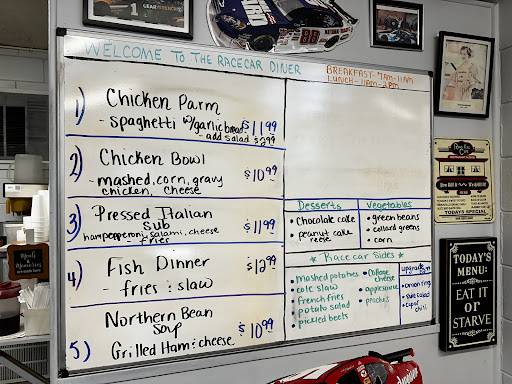 WELCOME TO THE RACECAR DINER
BREAKFAST- 7AM-11AM
LUNCH- 11AM-2PM
1) Chicken Parm
- spaghetti w/garlic bread $11.99
- add salad $2.99
2) Chicken Bowl
- mashed, corn, gravy $10.99
chicken, cheese
3) Pressed Italian
Sub $11.99
ham, pepperoni, salami, cheese
- fries
4) Fish Dinner $12.99
- fries : slaw
Northern Bean
Soup $10.99
5) Grilled Ham : cheese
Desserts
• chocolate cake
• peanut cake
reese
Vegetables
• green beans
• collard greens
• corn
* Racecar Sides *
• mashed potatoes
• cole slaw
• french fries
• potato salad
• pickled beets
• cottage
cheese
• applesauce
• pickles
• onion rings
• side salad
TODAY'S
MENU:
EAT IT
OR
STARVE
TODAY'S
SPECIAL
88